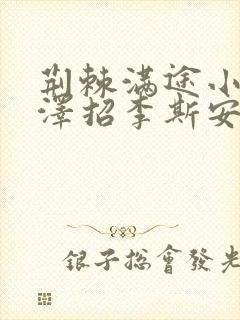 荆棘满途小
澤招李斯安
银子总會發光